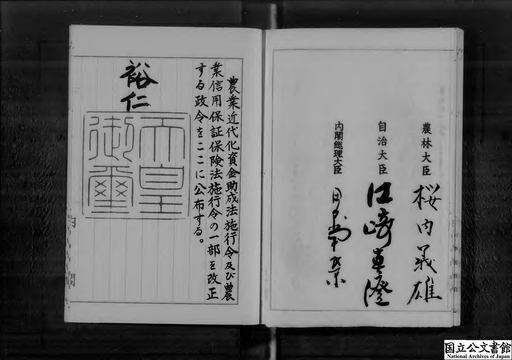 農林大臣 桜内義雄
自治大臣 江﨑真澄
内閣総理大臣 田中角榮
農業近代化資金助成法施行令及び農
業信用保証保険法施行令の一部を改正
する政令をここに公布する。
裕仁
天皇
御璽
国立公文書館
National Archives of Japan